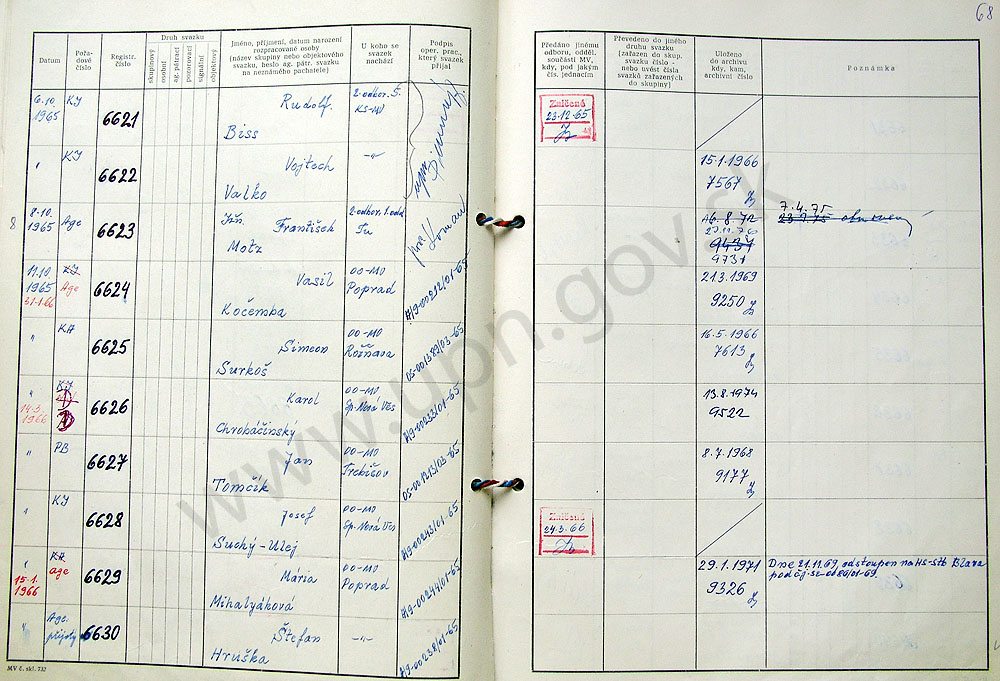 68
Datum
Pořadové číslo
Registr. číslo
Druh svazku
skupinový
osobní
ag. pátrací
pozorovací
signální
objektový
Jméno, příjmení, datum narození
rozpracované osoby
(název skupiny nebo objektového
svazku, heslo ag. pátr. svazku
na neznámého pachatele)
U koho se
svazek
nachází
Podpis
oper. prac.,
který svazek
přijal
Předáno jinému
odboru, odděl.
součásti MV,
kdy, pod jakým
čís. jednacím
Převedeno do jiného
druhu svazku
(zařazen do skup.
svazku číslo -
nebo uvést čísla
svazků zařazených
do skupiny)
Uloženo
do archivu
kdy, kam,
archivní číslo
Poznámka
6.10. 1965 KI 6621 Rudolf Biss 2. odbor S. KS-MV
Zničeno 23-12-65
" KI 6622 Vojtech Valko -"-
15.1.1966 7567
8
8.10. 1965 Age 6623 František Motz 2. odbor 1. odd
7.4.75
9437
9731
11.10 1965 31.1.66 KI Age 6624 Vasil Kočemba OO-MV Poprad A/9-00212/01-65
21.3.1969 9250
" KA 6625 Simeon Surkoš OO-MV Rožňava OS-001389/03-65
16.5.1966 7613
" 14.3. 1966 KI 6626 Karol Chrobáčinský OO-MV Sp. Nová Ves A/9-00233/01-65
13.8.1974 9522
" PB 6627 Jan Tomčík OO-MV Trebišov OS-001213/03-65
8.7.1968 9177
" KI 6628 Josef Suchý-Ulej OO-MV Sp. Nová Ves A/9-00243/01-65
Zničeno 24.3.66
" 15.1. 1966 KA age 6629 Mária Mihalyáková OO-MV Poprad A/9-00244/01-65
29.1.1971 9326 Dne 21.11.69 odstoupen na HS-StB Blava
pod čj. SZ-0086/01-69.
" Age. přijatý 6630 Štefan Hruška -"- A/9-00238/01-65
MV č. skl. 732
www.upn.gov.sk